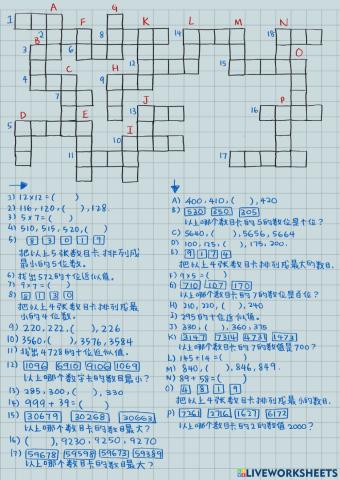 A
G
1
2
F
8
K
14
L
M
N
18
3
B
6
9
H
12
15
O
4
C
7
J
13
16
P
D
5
E
I
10
11
17
1) 12×12=( )
2) 116, 120, ( ), 128.
3) 5×7=( )
4) 510, 515, 520, ( )
5) 8 3 0 1 9
把以上5张数目卡排列成
最小的5位数。
6) 找出572的十位近似值。
7) 9×7=( )
8) 8 1 3 0
把以上4张数目卡排列成最
小的4位数。
9) 220, 222, ( ), 226
10) 3560, ( ), 3576, 3584
11) 找出4728的十位近似值。
12) 1096 6910 9106 1069
以上哪个数字卡的数目最小?
13) 285, 300, ( ), 330
14) 999+39=( )
15) 30679 30268 30663
以上哪个数目卡的数目最大?
16) ( ), 9230, 9250, 9270
17) 59678 59598 59673 59389
以上哪个数目卡的数目最大?
A) 400, 410, ( ), 420
B) 520 250 205
以上哪个数目卡的5的数位是十位?
C) 5640, ( ), 5656, 5664
D) 100, 125, ( ), 175, 200.
E) 9 1 7 4
把以上4张数目卡排列成最大的数目.
F) 9×5=( )
G) 710 107 170
以上哪个数目卡的7的数位是百位?
H) 210, 220, ( ), 240
I) 295的十位近似值。
J) 330, ( ), 360, 375
K) 3147 7314 4731 1473
以上哪个数目卡的7的数值是700?
L) 145+14=( )
M) 840, ( ), 846, 849.
N) 89+58=( )
O) 4 8 1 9
把以上4张数目卡排列成最小的数目.
P) 7261 2716 1627 6172
以上哪个数目卡的2的数值2000?
LIVEWORKSHEETS